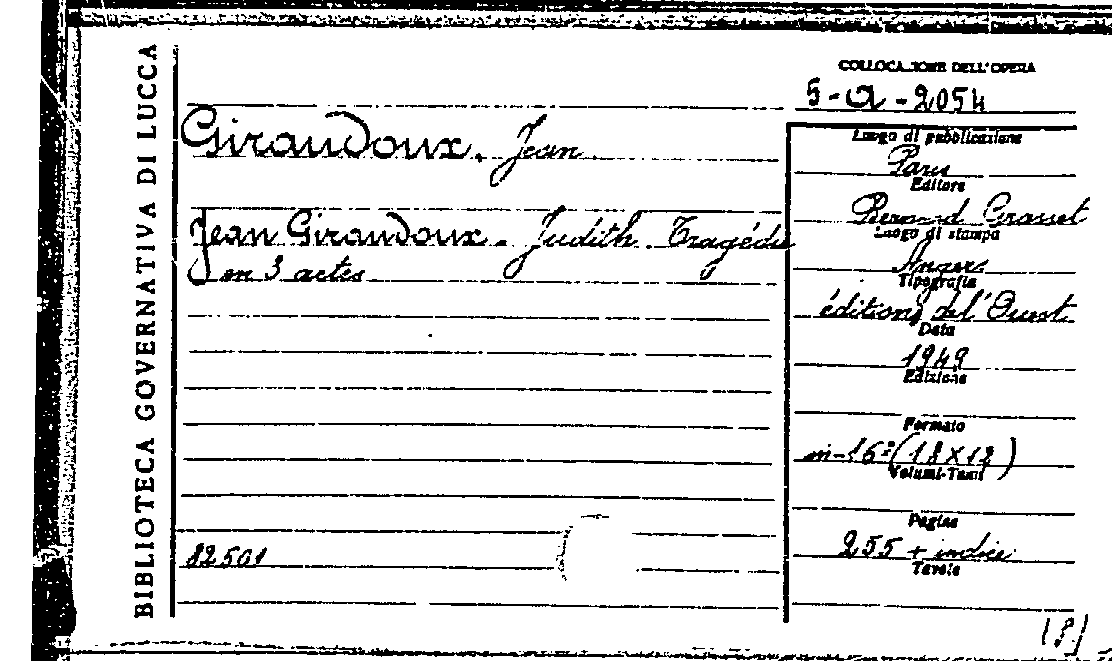 BIBLIOTECA GOVERNATIVA DI LUCCA
COLLOCAZIONE DELL'OPERA
5-a-2054
Giraudoux. Jean
Jean Giraudoux. Judith. Tragédie
en 3 actes
82501
Luogo di pubblicazione
Paris
Editore
Bernard Grasset
Luogo di stampa
Angers
Tipografia
éditions de l'Ouest
Data
1949
Edizione
Formato
in-16º (18X12)
Volumi-Tomi
Pagine
255 + indice
Tavole